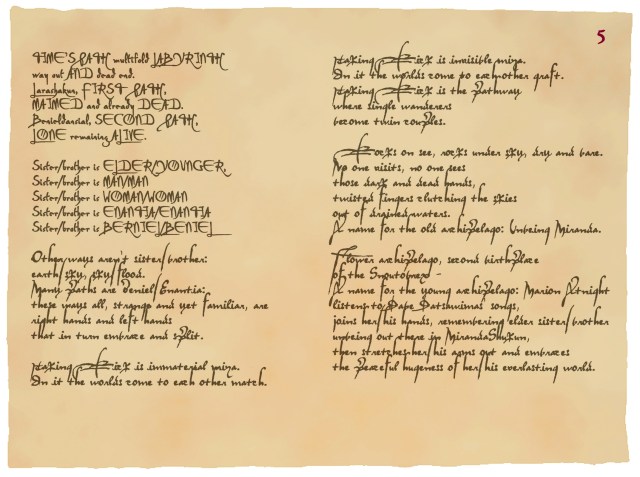 5
TIME'S PATH multifold LABYRINTH
way out AND dead end.
Larashakun, FIRST PATH,
MAIMED and already DEAD.
SECOND PATH,
LONE remaining ALIVE.
Sister/brother is ELDER/YOUNGER,
Sister/brother is MAN/MAN
Sister/brother is WOMAN/WOMAN
Sister/brother is ENANTIA/ENANTIA
Sister/brother is BERNIEL/BENIEL
Other ways aren't sister/brother:
earth/sky, sky/flood.
Many paths are Deniel/Enantia:
these ways all, strange and yet familiar, are
right hands and left hands
that in turn embrace and split.
is immaterial
In it the worlds come to each other match.
is invisible
In it the worlds come to each other graft.
is the pathway
where single wanderers
become twin couples.
Forks on see, rocks under sky, dry and bare.
No one visits, no one sees
those dark and dead hands,
twisted fingers clutching the skies
out of drained waters.
A name for the old archipelago: Unbeing Miranda.
Flower archipelago, second birthplace
of the
A name for the young archipelago: Marion
listens to Pape songs,
joins her/his hands, remembering elder sister/brother
unbeing out there in
then stretches her/his arms out and embraces
the peaceful hugeness of her/his everlasting world.